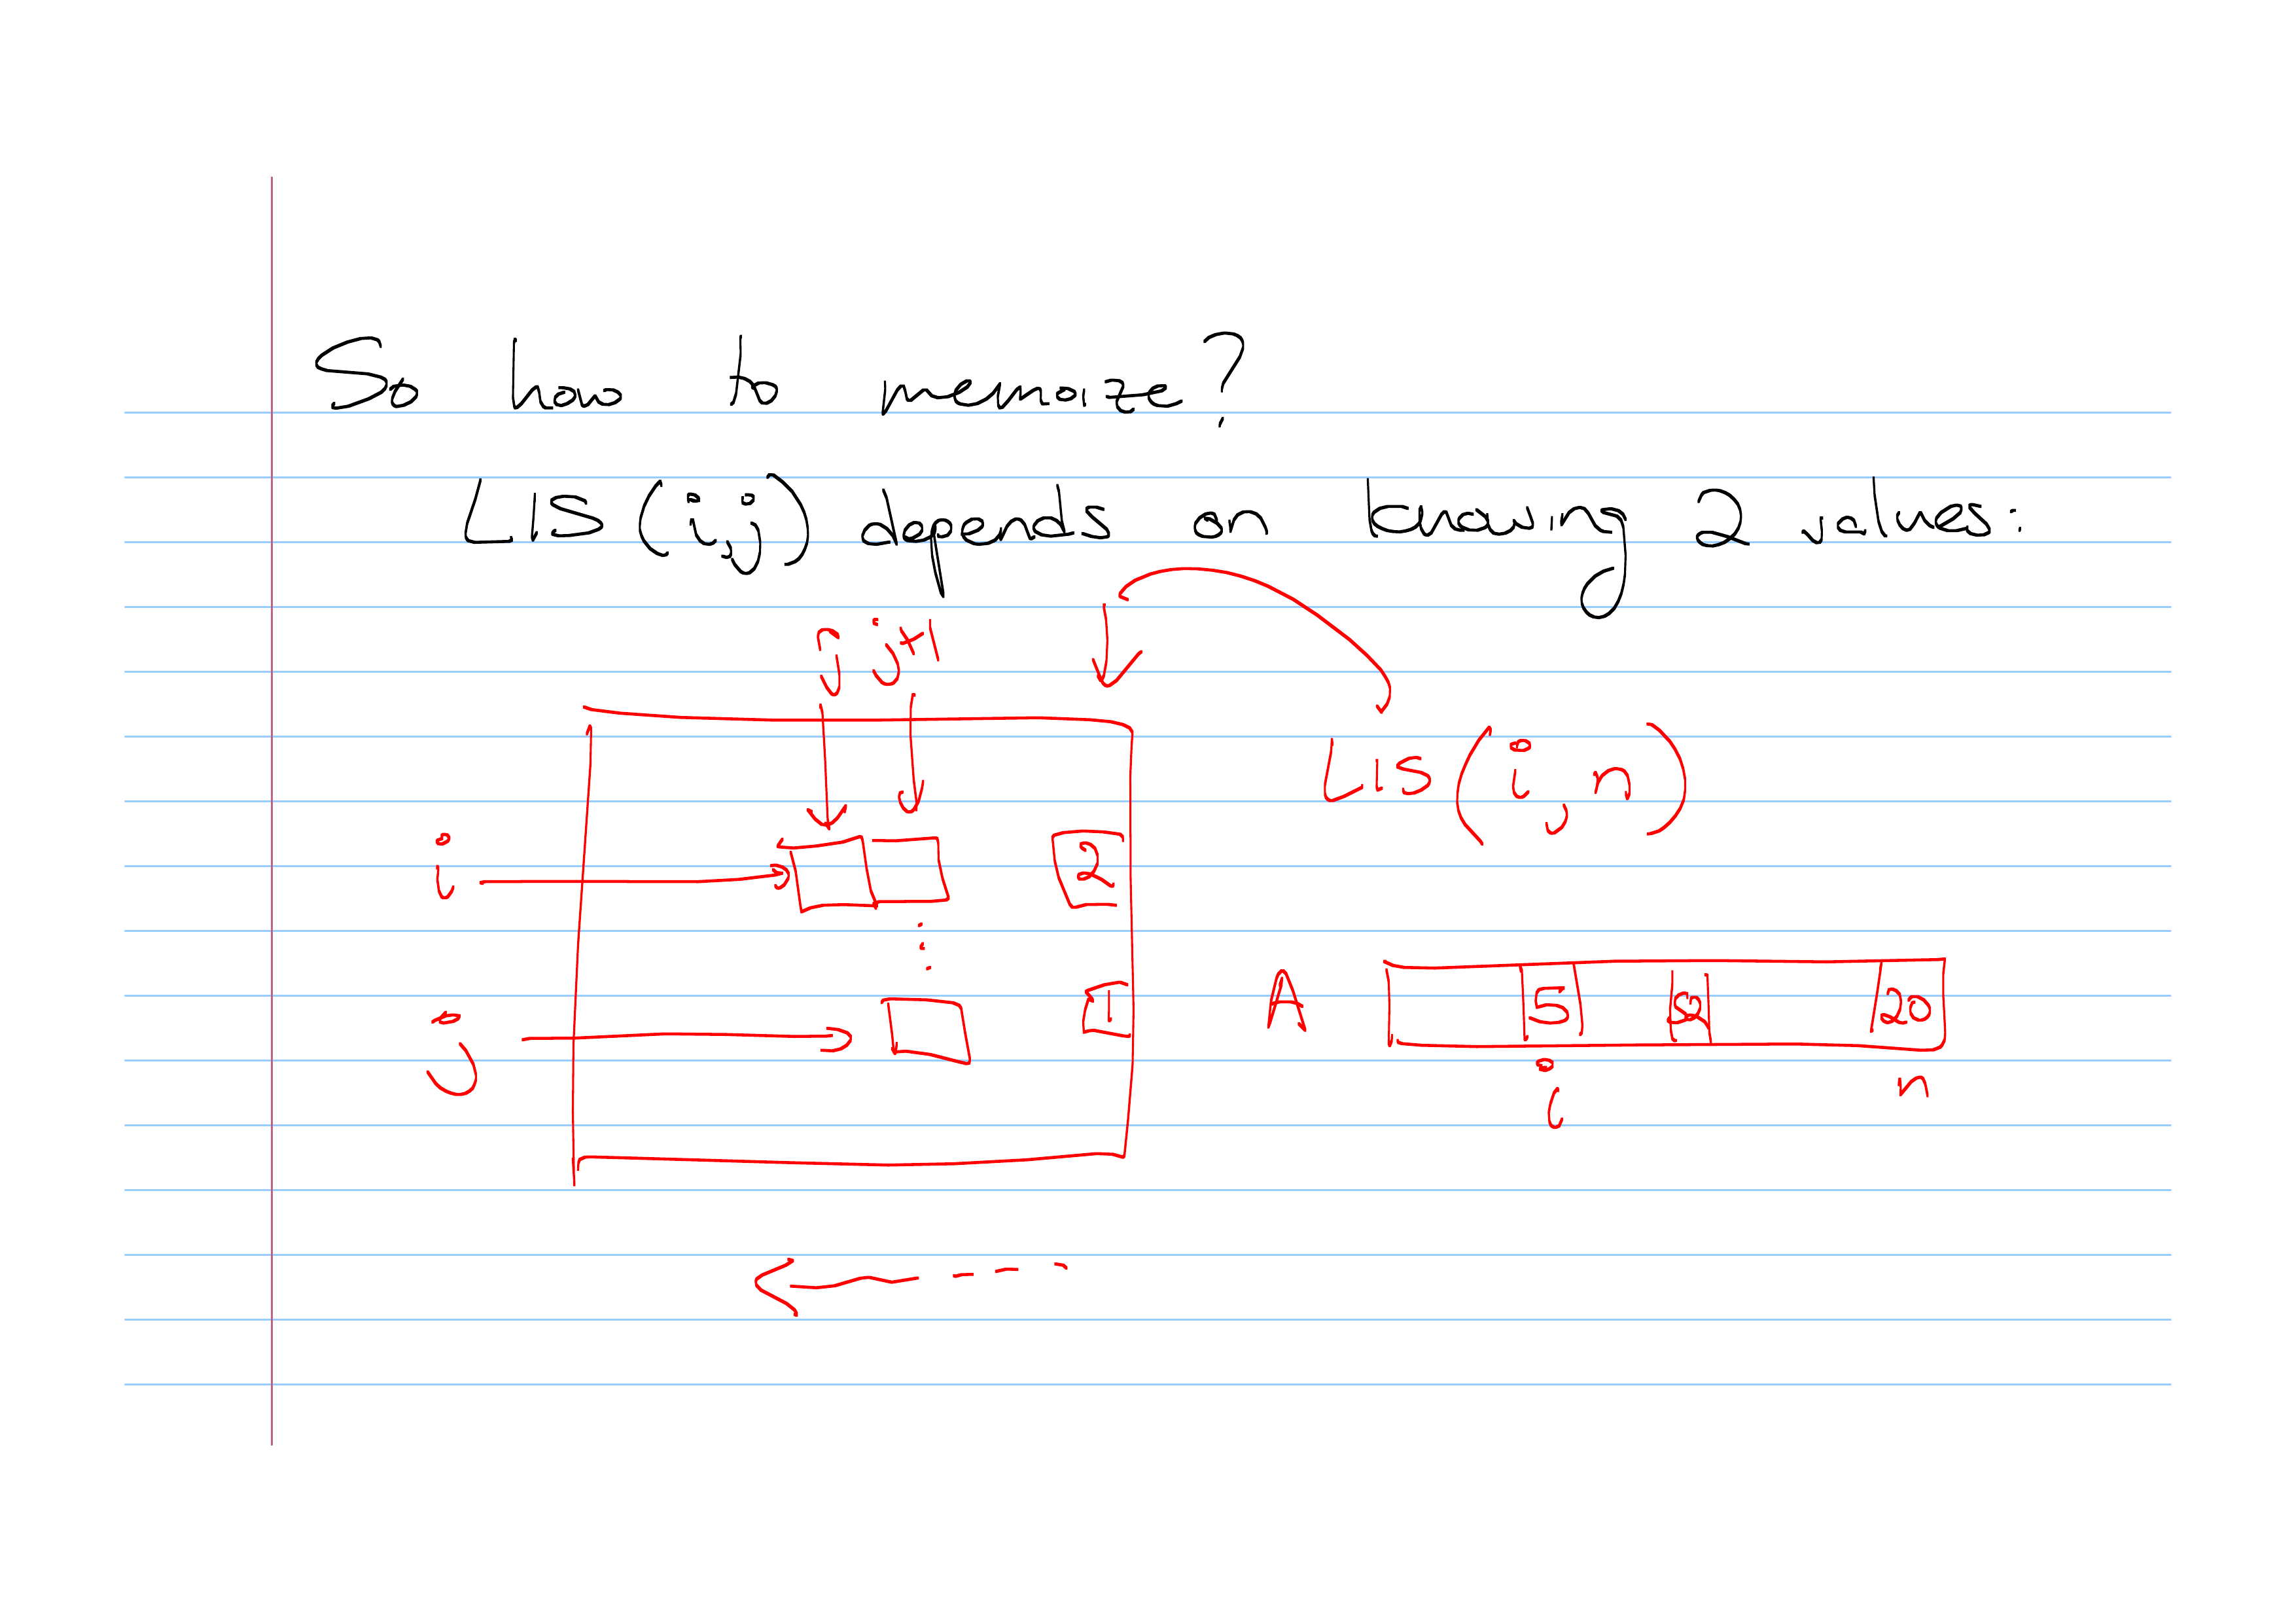 So how to memoize?
LIS(i,j) depends on knowing 2 values:
j j+1
LIS(i,n)
i 2
j 1 A 5 20
i n